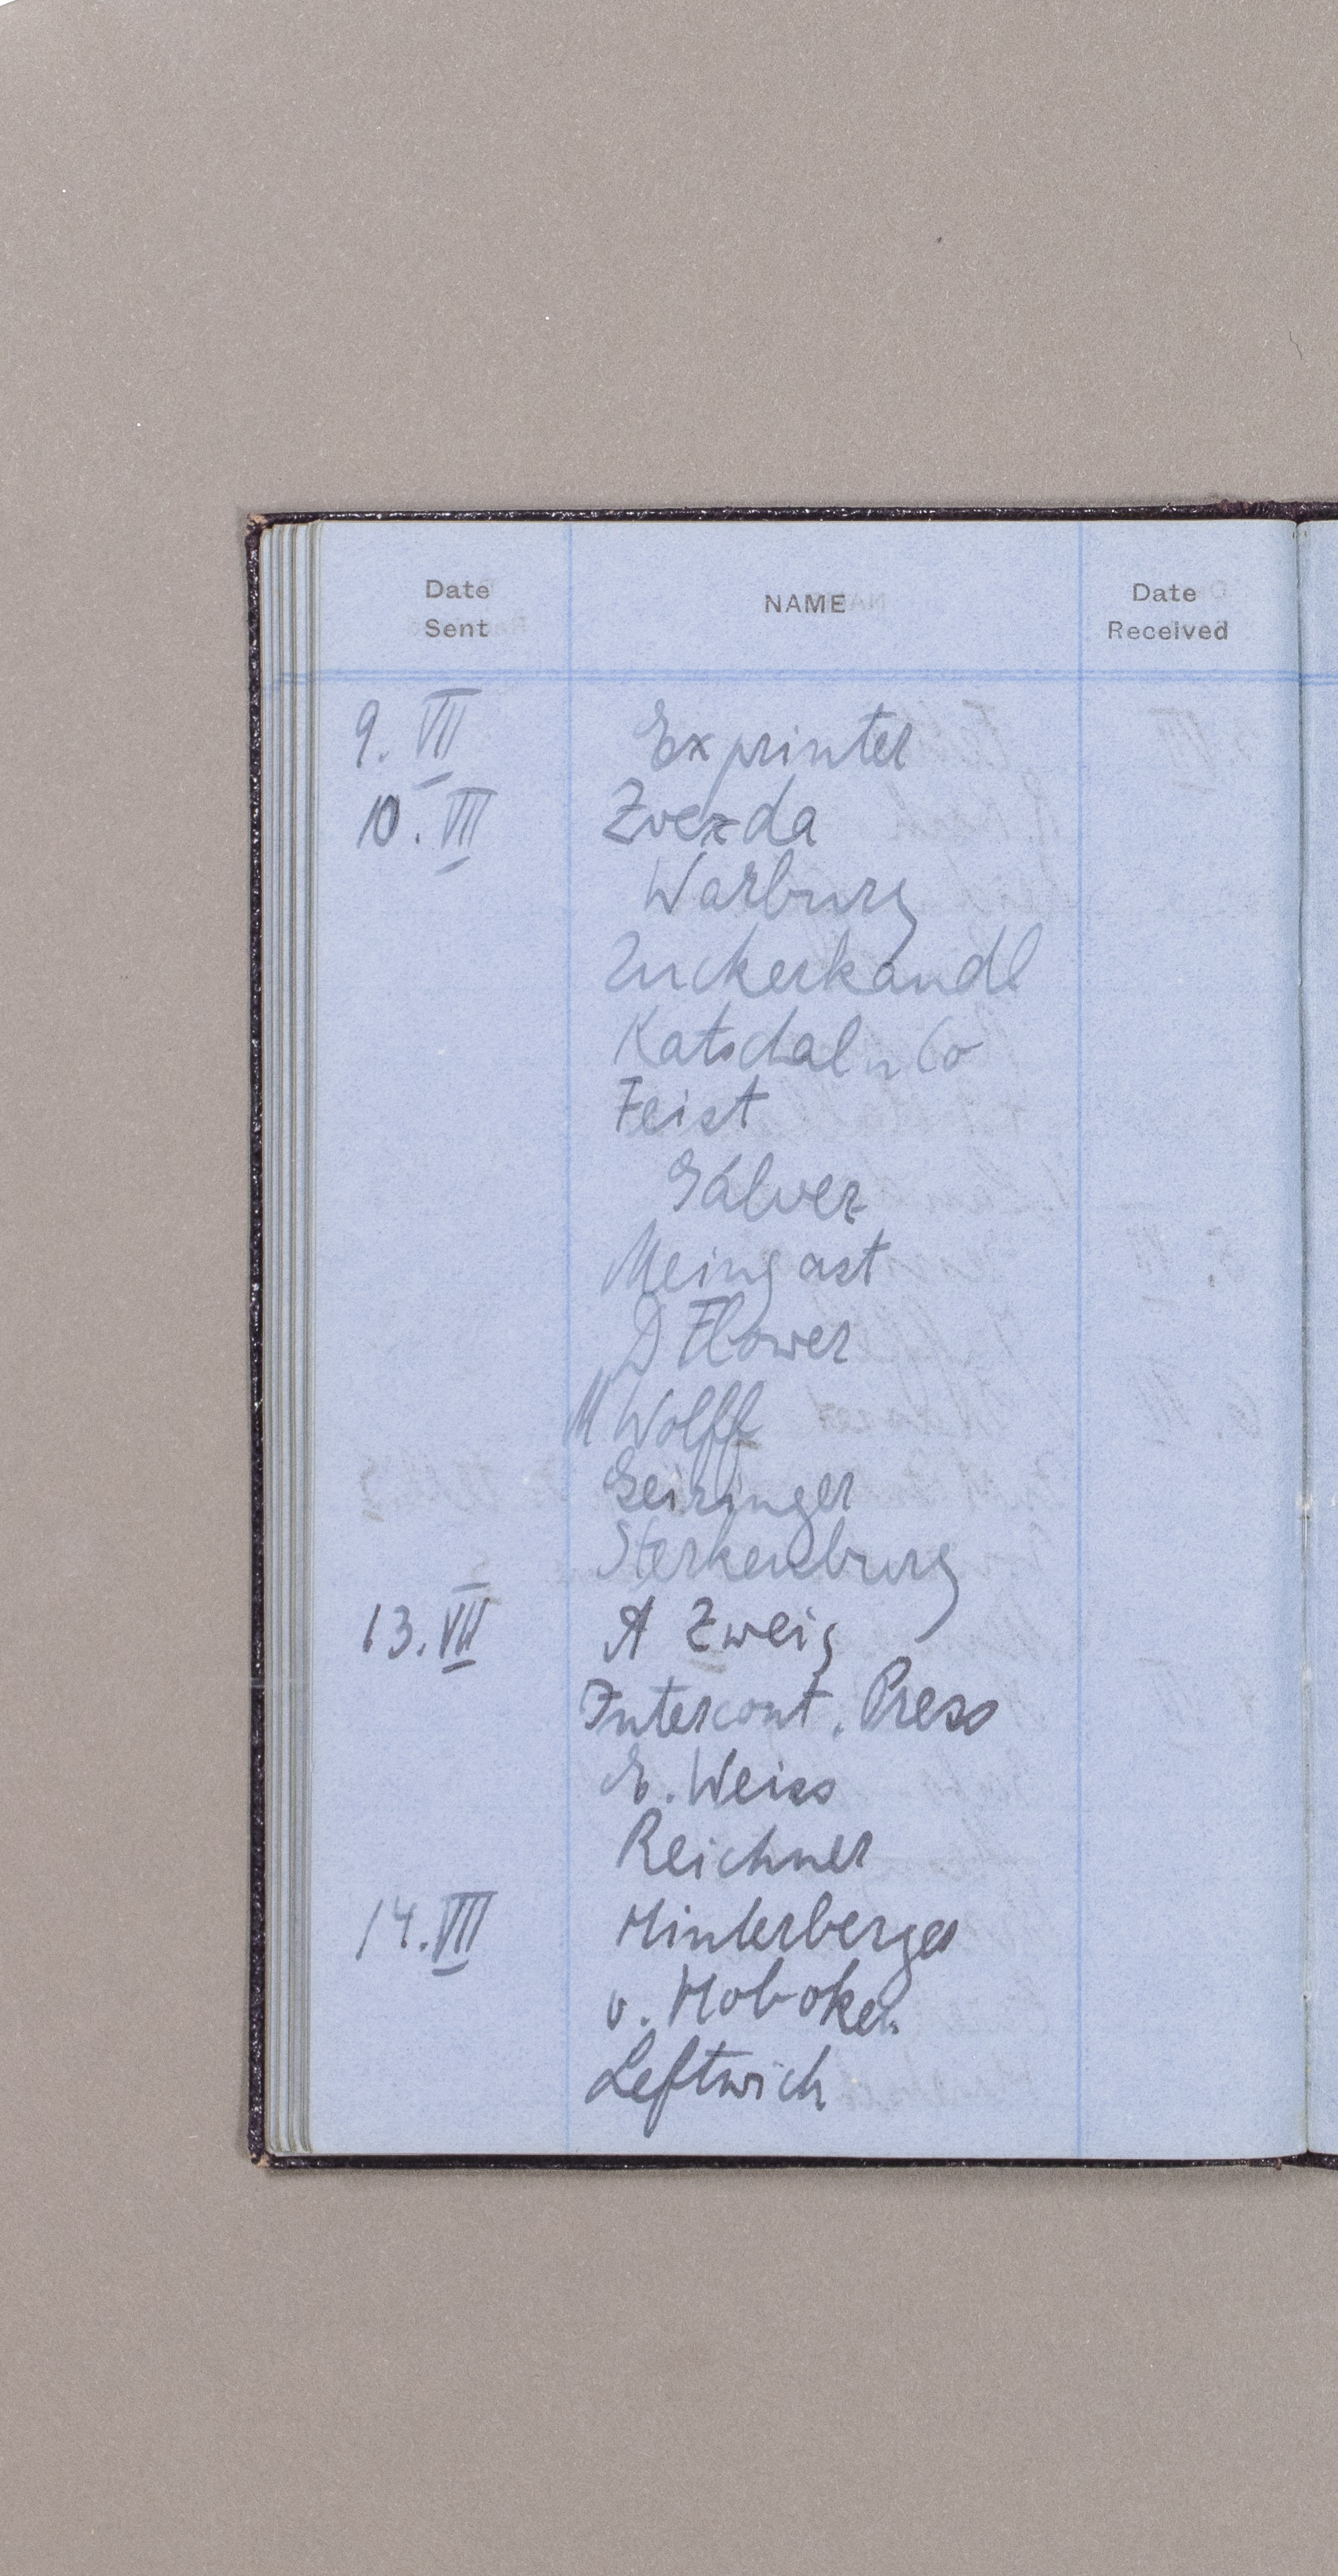 Date Sent NAME Date Received
9. VII Exprinter
10. VII Zvezda
Warburg
Zuckerkandl
Katschal u Co
Feist
Gálvez
Meingast
D Flower
M Wolff
Geiringer
Sterkenburg
13. VII A Zweig
Intercont. Press
E. Weiss
Reichner
14. VII Hinterberger
v. Hoboken
Leftwich